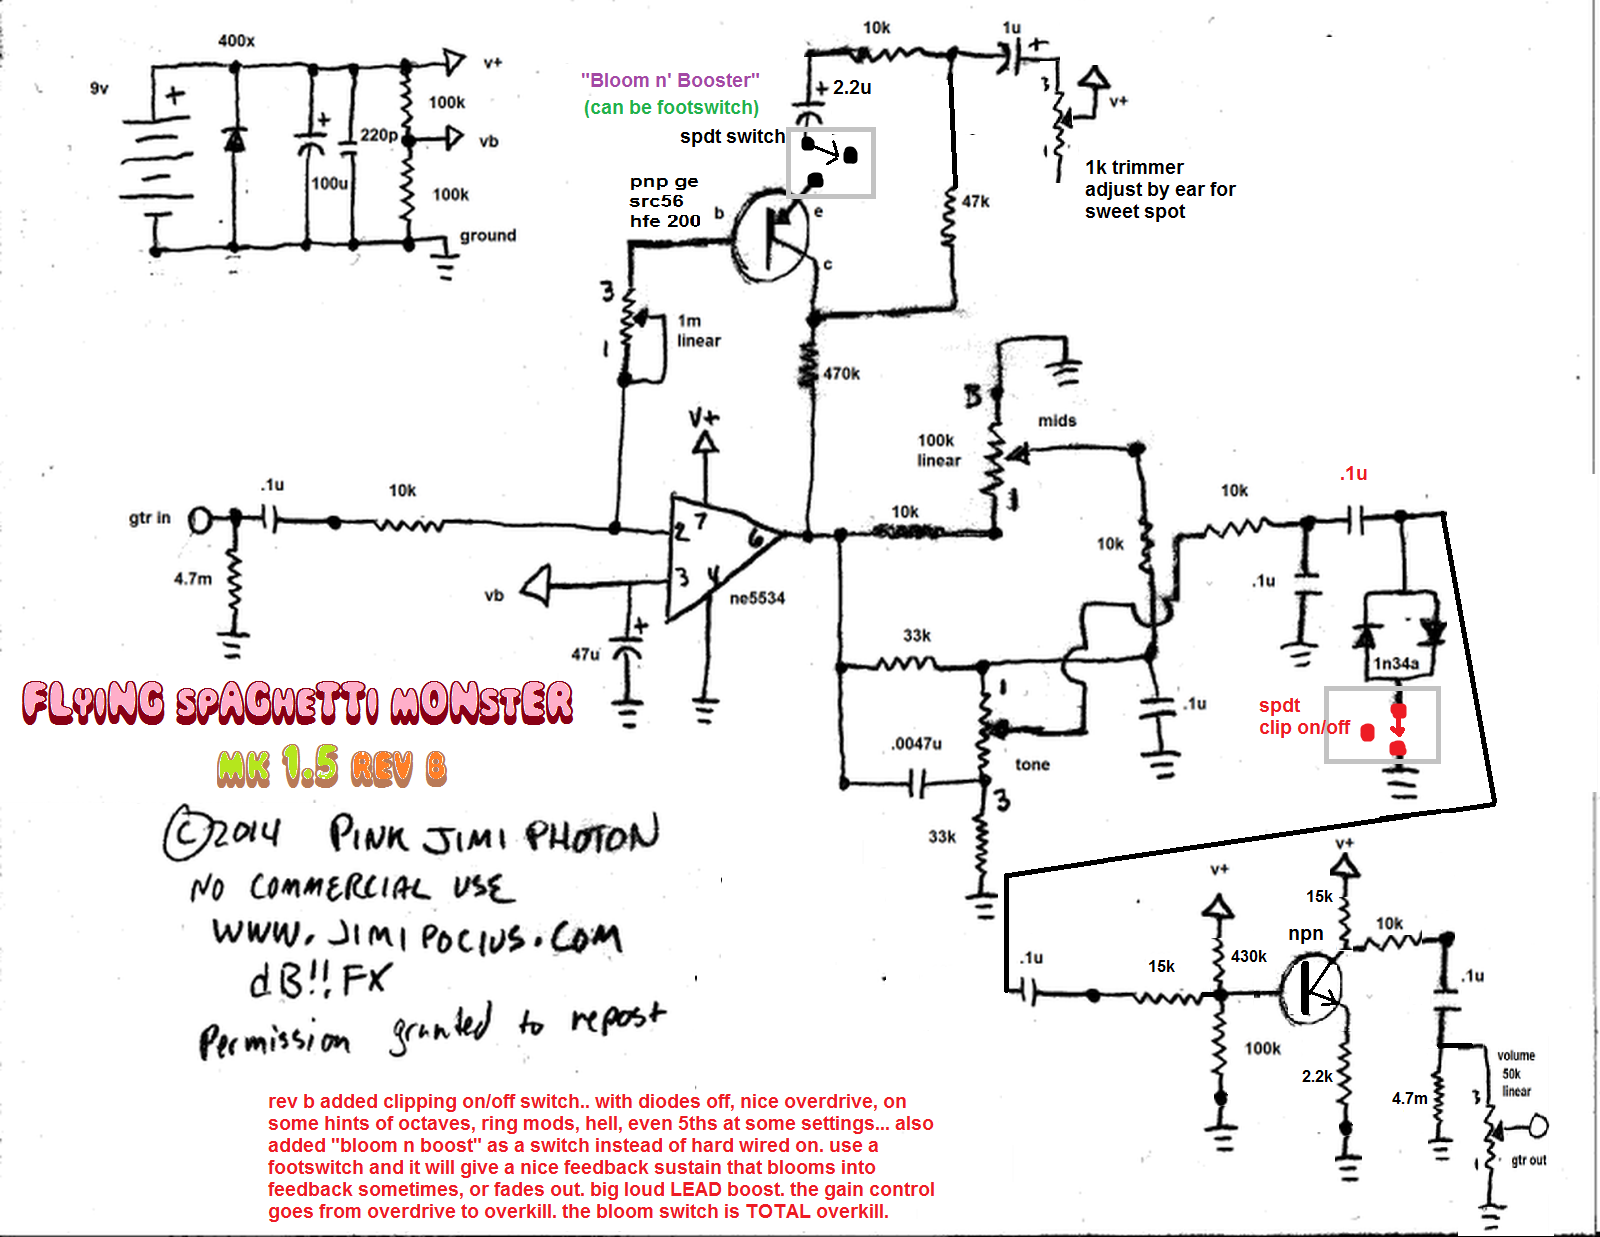 400x
9v
+
v+
100k
+
220p
vb
100u
100k
ground
"Bloom n' Booster"
(can be footswitch)
spdt switch
+ 2.2u
10k
1u
+
3
v+
1
1k trimmer
adjust by ear for
sweet spot
pnp ge
src56
hfe 200
b
e
c
47k
3
1m
linear
1
470k
V+
B
mids
100k
linear
1
gtr in
.1u
10k
4.7m
2
7
6
3
4
ne5534
vb
+
47u
10k
10k
10k
.1u
.1u
1n34a
spdt
clip on/off
33k
1
.1u
.0047u
tone
3
33k
FLYING SPAGHETTI MONSTER
MK 1.5 REV B
©2014 PINK JIMI PHOTON
NO COMMERCIAL USE
WWW.JIMIPOCIUS.COM
dB!!FX
Permission granted to repost
v+
v+
15k
npn
10k
.1u
15k
430k
.1u
100k
2.2k
4.7m
volume
50k
linear
3
1
gtr out
rev b added clipping on/off switch.. with diodes off, nice overdrive, on
some hints of octaves, ring mods, hell, even 5ths at some settings... also
added "bloom n boost" as a switch instead of hard wired on. use a
footswitch and it will give a nice feedback sustain that blooms into
feedback sometimes, or fades out. big loud LEAD boost. the gain control
goes from overdrive to overkill. the bloom switch is TOTAL overkill.